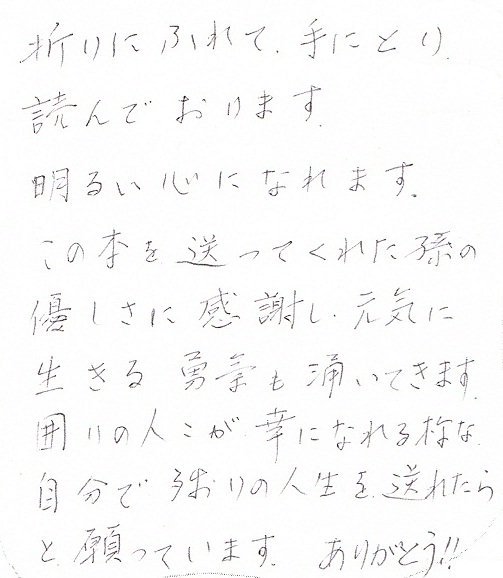 折りにふれて、手にとり、
読んでおります。
明るい心になれます。
この本を送ってくれた孫の
優しさに感謝し、元気に
生きる勇気も涌いてきます。
囲りの人々が幸になれる様な
自分で残りの人生を送れたら
と願っています。 ありがとう!!